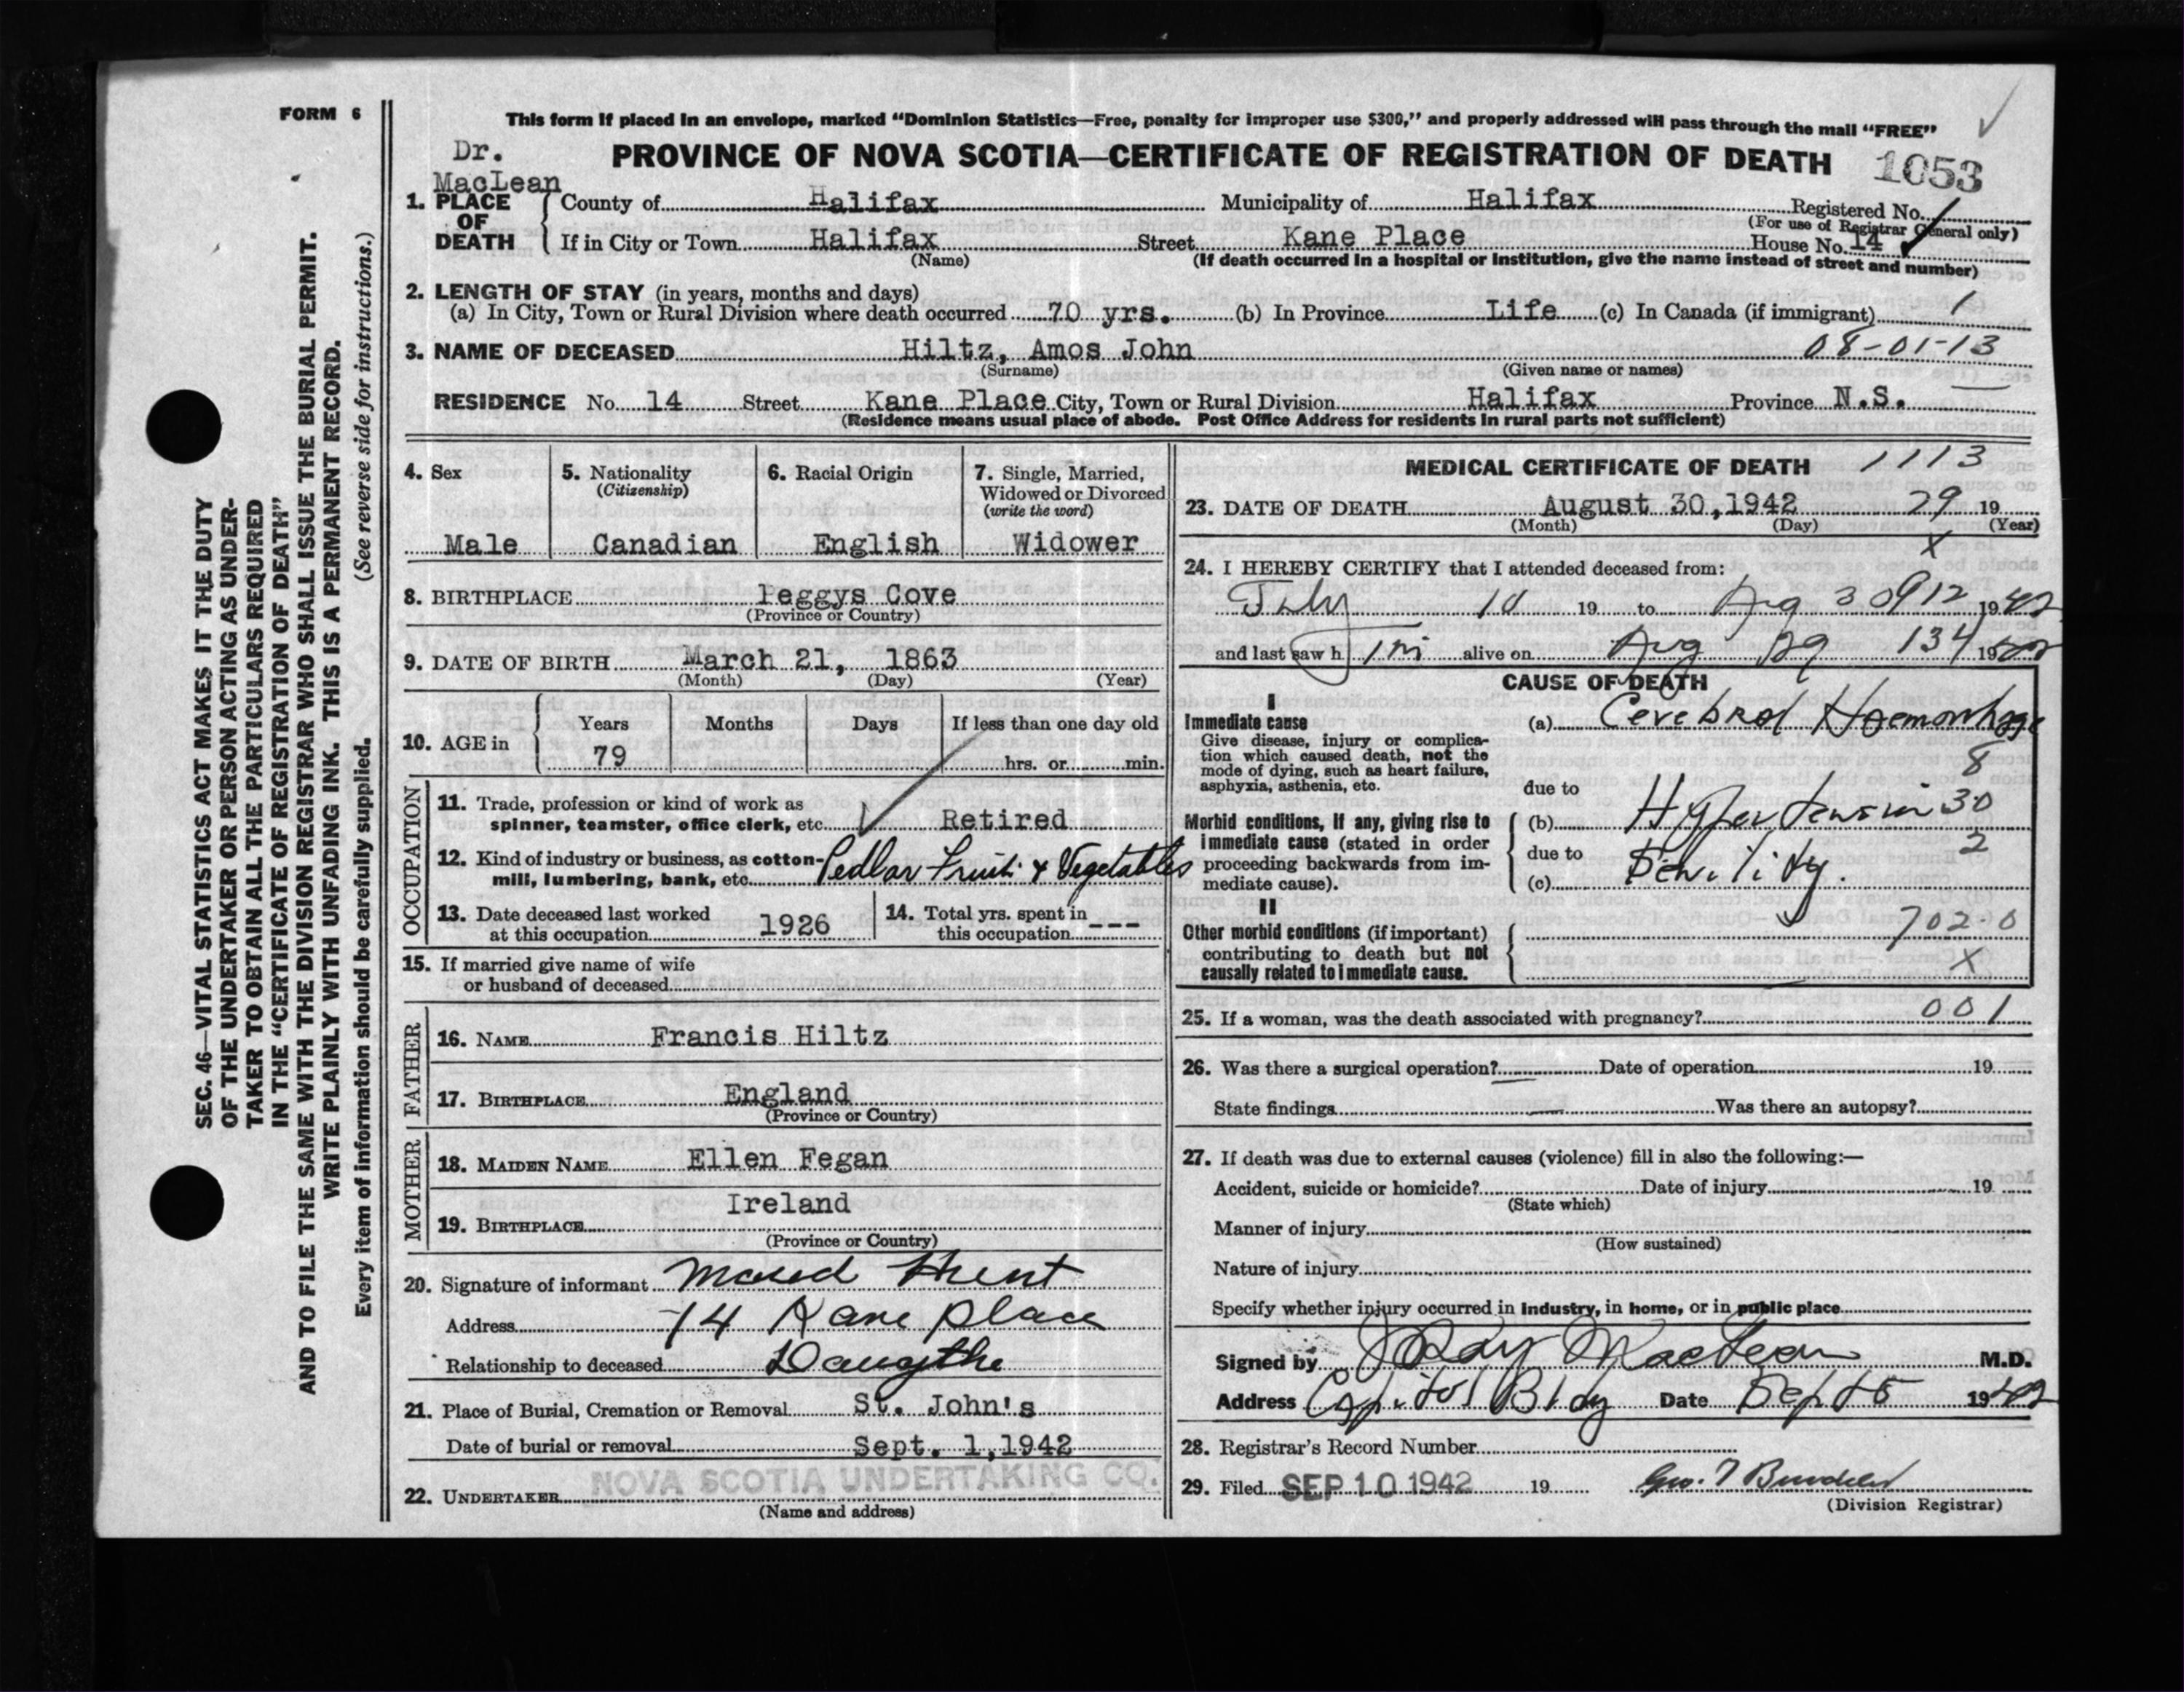 FORM 6
This form if placed in an envelope, marked "Dominion Statistics—Free, penalty for improper use $300," and properly addressed will pass through the mail "FREE"
Dr.
MacLean
PROVINCE OF NOVA SCOTIA—CERTIFICATE OF REGISTRATION OF DEATH 1053
1. PLACE OF DEATH
County of Halifax Municipality of Halifax Registered No.
(For use of Registrar General only)
If in City or Town Halifax Street Kane Place House No. 14
(Name) (If death occurred in a hospital or institution, give the name instead of street and number)
2. LENGTH OF STAY (in years, months and days)
(a) In City, Town or Rural Division where death occurred 70 yrs. (b) In Province Life (c) In Canada (if immigrant) 1
3. NAME OF DECEASED Hiltz, Amos John 08-01-13
(Surname) (Given name or names)
RESIDENCE No. 14 Street Kane Place City, Town or Rural Division Halifax Province N.S.
(Residence means usual place of abode. Post Office Address for residents in rural parts not sufficient)
4. Sex
Male
5. Nationality
(Citizenship)
Canadian
6. Racial Origin
English
7. Single, Married,
Widowed or Divorced
(write the word)
Widower
8. BIRTHPLACE Peggys Cove
(Province or Country)
9. DATE OF BIRTH March 21, 1863
(Month) (Day) (Year)
10. AGE in
Years Months Days If less than one day old
79 hrs. or min.
OCCUPATION
11. Trade, profession or kind of work as
spinner, teamster, office clerk, etc. Retired
12. Kind of industry or business, as cotton-
mill, lumbering, bank, etc. Pedlar Fruit & Vegetables
13. Date deceased last worked
at this occupation 1926
14. Total yrs. spent in
this occupation ---
15. If married give name of wife
or husband of deceased
FATHER
16. NAME Francis Hiltz
17. BIRTHPLACE England
(Province or Country)
MOTHER
18. MAIDEN NAME Ellen Fegan
19. BIRTHPLACE Ireland
(Province or Country)
20. Signature of informant Maud Hunt
Address 14 Kane place
Relationship to deceased Daugthe
21. Place of Burial, Cremation or Removal St. John's
Date of burial or removal Sept. 1, 1942
22. UNDERTAKER NOVA SCOTIA UNDERTAKING CO.
(Name and address)
MEDICAL CERTIFICATE OF DEATH 1113
23. DATE OF DEATH August 30, 1942 29 19
(Month) (Day) (Year)
X
24. I HEREBY CERTIFY that I attended deceased from:
July 10 19 to Aug 30 912 1942
and last saw h im alive on Aug 29 134 1942
CAUSE OF DEATH
I
Immediate cause
Give disease, injury or complica-
tion which caused death, not the
mode of dying, such as heart failure,
asphyxia, asthenia, etc.
(a) Cerebral Haemorrhage
8
due to
Morbid conditions, if any, giving rise to
immediate cause (stated in order
proceeding backwards from im-
mediate cause).
(b) Hypertension 30
due to 2
(c) Senility.
II
Other morbid conditions (if important)
contributing to death but not
causally related to immediate cause.
702-0
X
25. If a woman, was the death associated with pregnancy? 001
26. Was there a surgical operation? Date of operation 19
State findings Was there an autopsy?
27. If death was due to external causes (violence) fill in also the following:—
Accident, suicide or homicide? Date of injury 19
(State which)
Manner of injury
(How sustained)
Nature of injury
Specify whether injury occurred in industry, in home, or in public place
Signed by MacLean M.D.
Address Capitol Bldg Date Sept 5 1942
28. Registrar's Record Number
29. Filed SEP 10 1942 19
(Division Registrar)
SEC. 46—VITAL STATISTICS ACT MAKES IT THE DUTY
OF THE UNDERTAKER OR PERSON ACTING AS UNDER-
TAKER TO OBTAIN ALL THE PARTICULARS REQUIRED
IN THE "CERTIFICATE OF REGISTRATION OF DEATH"
AND TO FILE THE SAME WITH THE DIVISION REGISTRAR WHO SHALL ISSUE THE BURIAL PERMIT.
WRITE PLAINLY WITH UNFADING INK. THIS IS A PERMANENT RECORD.
Every item of information should be carefully supplied. (See reverse side for instructions.)